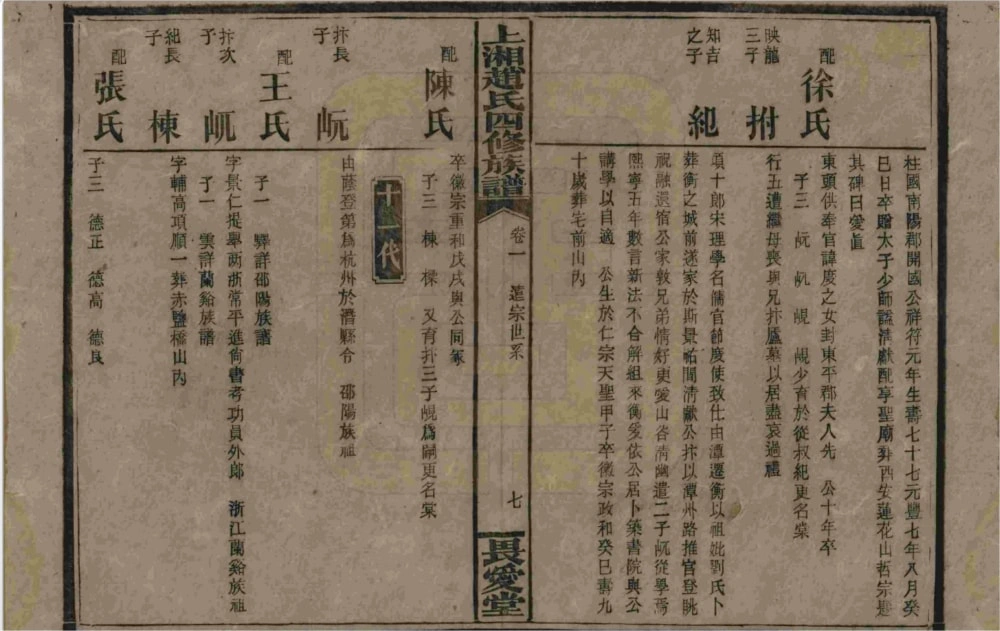 柱國南陽郡開國公祥符元年生壽七十七元豐七年八月癸
巳日卒贈太子少師謚清獻配享聖廟葬西安蓮花山哲宗題
其碑曰愛直
配
徐氏
東頭供奉官諱度之女封東平郡夫人先 公十年卒
子三 㞩 㞾 覘 覘少育於從叔紀更名棠
映龍
三子
拊
行五遭繼母喪與兄抃廬墓以居盡哀過禮
知吉
之子
紀
頌十郎宋理學名儒官節度使致仕由潭遷衡以祖妣劉氏卜
葬衡之城前遂家於斯景祐間清獻公抃以潭州路推官登眺
祝融還宿公家敦兄弟情好更愛山谷清幽遣二子㞾從學焉
熙寧五年數言新法不合解組來衡爰依公居卜築書院與公
講學以自適 公生於仁宗天聖甲子卒徽宗政和癸巳壽九
十歲葬宅前山內
上湘趙氏四修族譜
卷一 遠宗世系 七
畏愛堂
配
陳氏
卒徽宗重和戊戌與公同冢
子三 棟 樑 又育抃三子覘為嗣更名棠
十一代
抃長
子
㞩
由蔭登第為杭州於潛縣令 邵陽族祖
配
王氏
子一 驛詳邵陽族譜
抃次
子
㞾
字景仁提舉兩浙常平進尙書考功員外郎 浙江蘭谿族祖
子一 雲詳蘭谿族譜
紀長
子
棟
字輔高項順一葬赤鹽橋山內
配
張氏
子三 德正 德高 德良